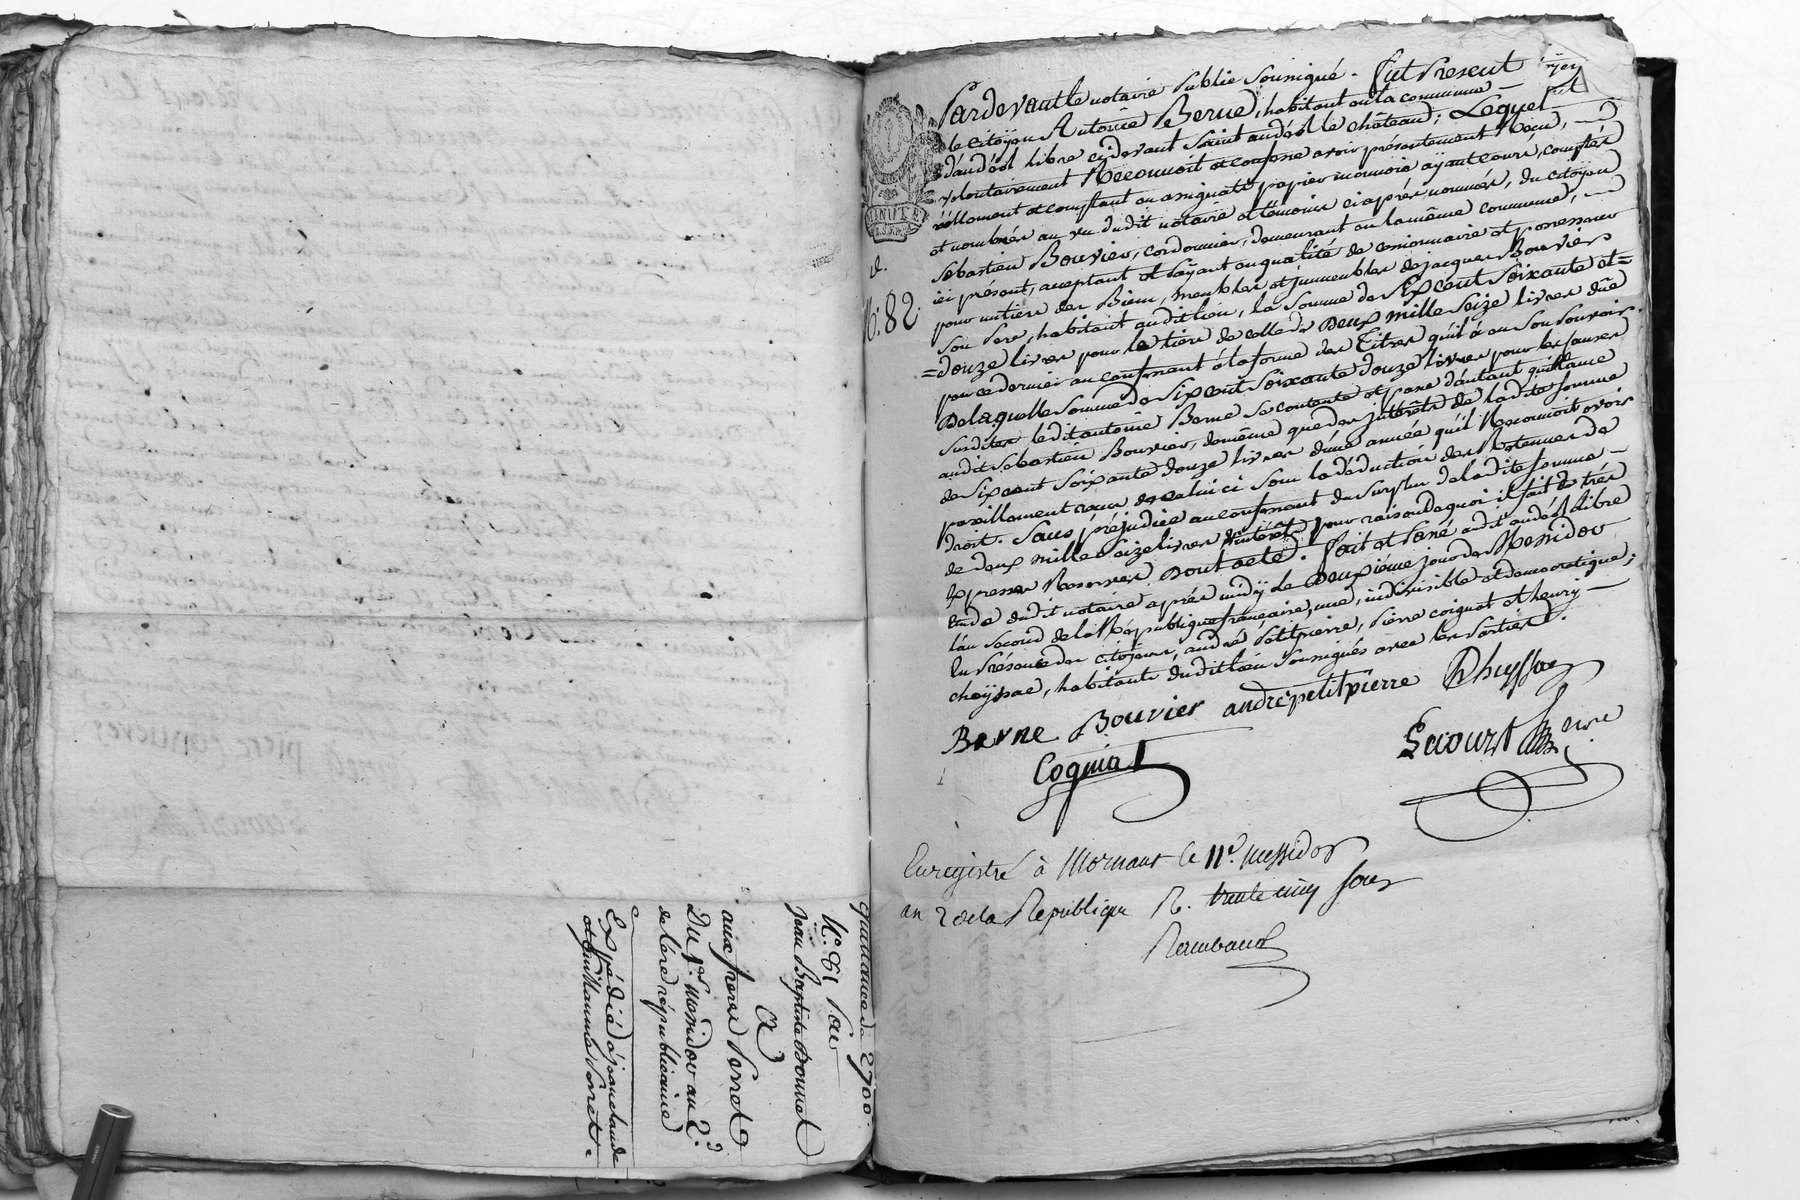 quittance de 2700#
N.° 81 Par
Jean Baptiste Bonnet
a
aux freres Perret
Du 1.er messidor an 2.d
de l'ère républicaine
Expédié à jean claude
et guillaume Perret.
MINUTE
N.° 82.
Pardevant le notaire Public soussigné. fut Present
le citoyen Antoine Berne, habitant en la commune
d'andéol libre cydevant Saint andéol le château; Lequel
volontairement Reconnoit et confesse avoir présentement Reçu,
réellement et comptant en assignats papier monnoie ayant cours, comptés
et nombrés au vu dudit notaire et témoins ciaprés nommés, du citoyen
Sebastien Bouvier, cordonnier, demeurant en la même commune,
ici présent, acceptant et payant en qualité de cessionnaire et possesseur
pour un tiers des Biens, meubles et immeubles de jacques Bouvier
son Pere, habitant audit lieu, la somme de Six cent Soixante et
douze livres pour le tiers de celle de Deux mille Seize livres düe
par ce dernier au confessant à la forme des Titres qu'il à en Son pouvoir.
De laquelle somme de Six cent Soixante douze livres pour les causes
Susdites ledit antoine Berne se contente et passe d'autant quittance
audit Sebastien Bouvier, de même que des Intérêts de ladite somme
de Six cent Soixante douze livres d'une année qu'il Reconnoit avoir
pareillement reçus de celui ci sous la déduction des Retenues de
droit. Sans préjudice au confessant du Surplus de ladite somme
de deux mille Seize livres & intérêts pour raison de quoi il fait de trés
Expresses Reserves. Dont acte. fait et passé audit andéol libre
Etude dudit notaire après midÿ le Deuxième jour de Messidor
l'an Second de la République française, une, indivisible et democratique;
En Présence des citoyens, andré Petitpierre, Pierre coignat et henry
cheyssac, habitants dudit lieu soussignés avec les Parties.
Berne Bouvier andrépetitpierre
Cogniat
Enregistré à Mornant le 11.e messidor
an 2 de la Republique R. trente cinq sous
Rambaud